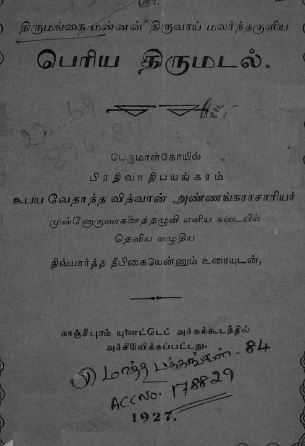 ஸ்ரீ:
திருமங்கை மன்னன் திருவாய் மலர்ந்தருளிய
பெரிய திருமடல்.
பெருமாள்கோயில்
பிரதிவாதிபயங்கரம்
உபய வேதாந்த வித்வான் அண்ணங்கராசாரியர்
முன்னோருரைகளைத்தழுவி எளிய நடையில்
தெளிய எழுதிய
திவ்யார்த்த தீபிகையென்னும் உரையுடன்,
காஞ்சீபுரம் யுனைட்டெட் அச்சுக்கூடத்தில்
அச்சிவிக்கப்பட்டது.
மொத்த பக்கங்கள் - 84
ACC No. 178829
1927.